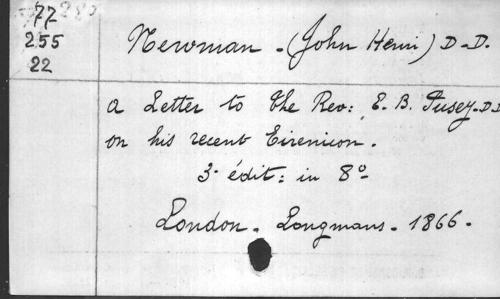 77
255
22
Newman - (John Henri) D-D.
a Letter to the Rev: E. B. Pusey-D.D
on his recent Eirenicon.
3e édit: in 8o
London - Longmans - 1866 -